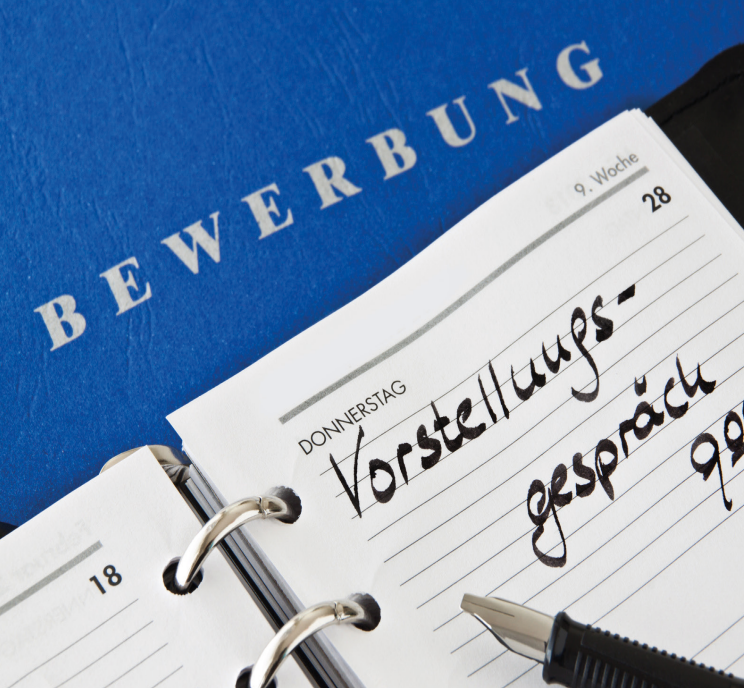 BEWERBUNG
9. Woche
28
DONNERSTAG
Vorstellungs-
gespräch
18